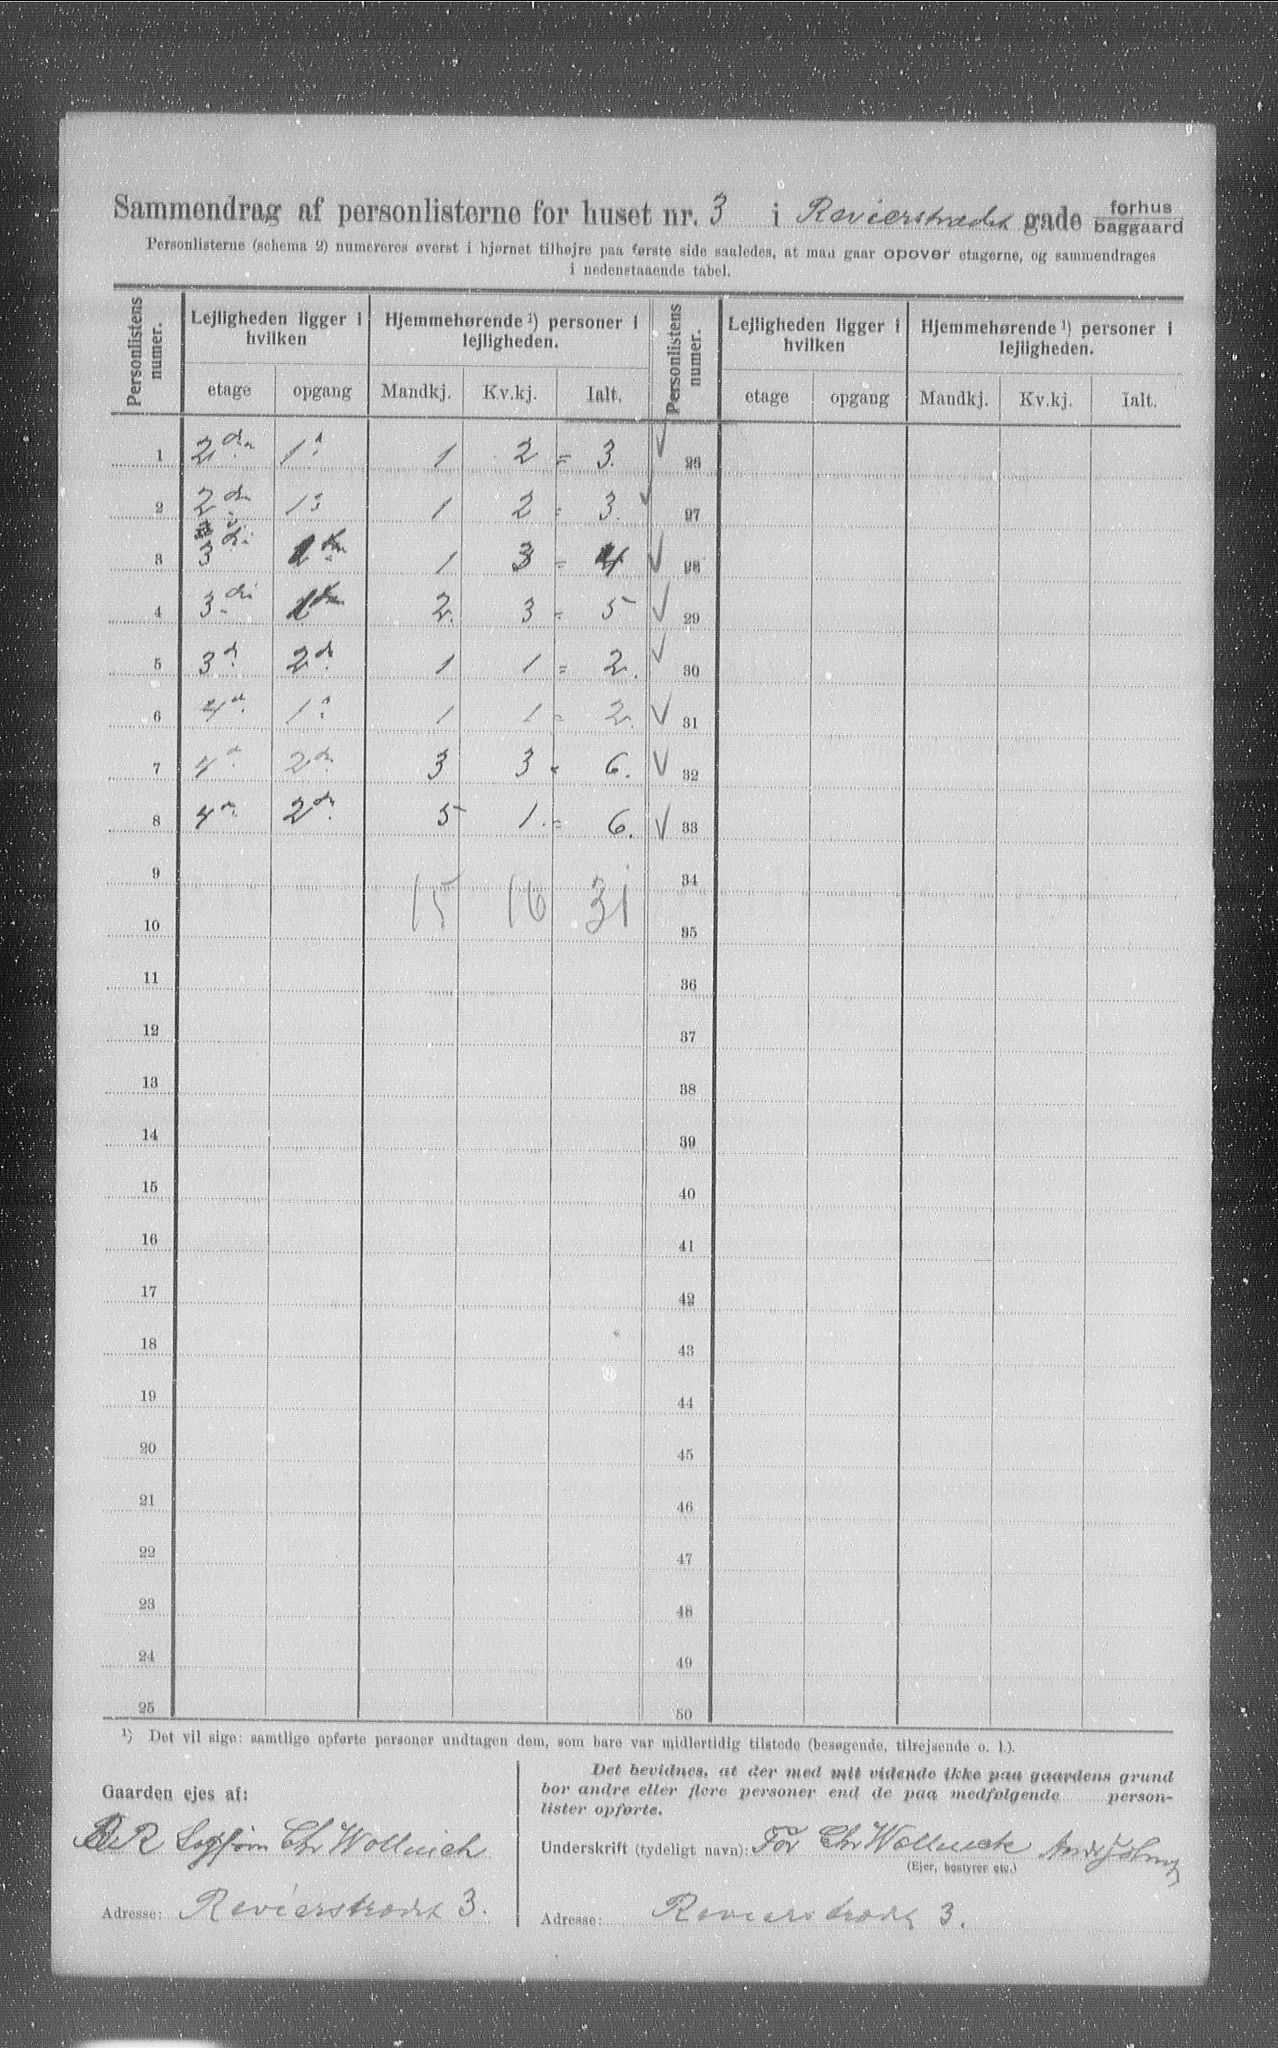 Sammendrag af personlisterne for huset nr. 3 i Revierstrædet gade forhus baggaard
Personlisterne (schema 2) numereres øverst i hjørnet tilhøjre paa første side saaledes, at man gaar opover etagerne, og sammendrages
i nedenstaaende tabel.
Personlistens numer. Lejligheden ligger i hvilken Hjemmehørende ¹) personer i lejligheden. Personlistens numer. Lejligheden ligger i hvilken Hjemmehørende ¹) personer i lejligheden.
etage opgang Mandkj. Kv.kj. Ialt. etage opgang Mandkj. Kv.kj. Ialt.
1 2den 1ste 1 2 = 3. 26
2 2den 1ste 1 2 = 3. 27
3 3die 1 3 = 4 28
4 3die 2. 3 = 5 29
5 3d. 2d. 1 1 = 2. 30
6 4d. 1ste 1 1 = 2. 31
7 4d. 2den 3 3 = 6. 32
8 4d. 2den 5 1. = 6. 33
9 15 16 31 34
10 35
11 36
12 37
13 38
14 39
15 40
16 41
17 42
18 43
19 44
20 45
21 46
22 47
23 48
24 49
25 50
¹) Det vil sige: samtlige opførte personer undtagen dem, som bare var midlertidig tilstede (besøgende, tilrejsende o. l.).
Gaarden ejes af:
Chr Wollnick
Adresse: Revierstrædet 3.
Det bevidnes, at der med mit vidende ikke paa gaardens grund
bor andre eller flere personer end de paa medfølgende person-
lister opførte.
Underskrift (tydeligt navn): For Chr Wollnick
(Ejer, bestyrer etc.)
Adresse: Revierstrædet 3.